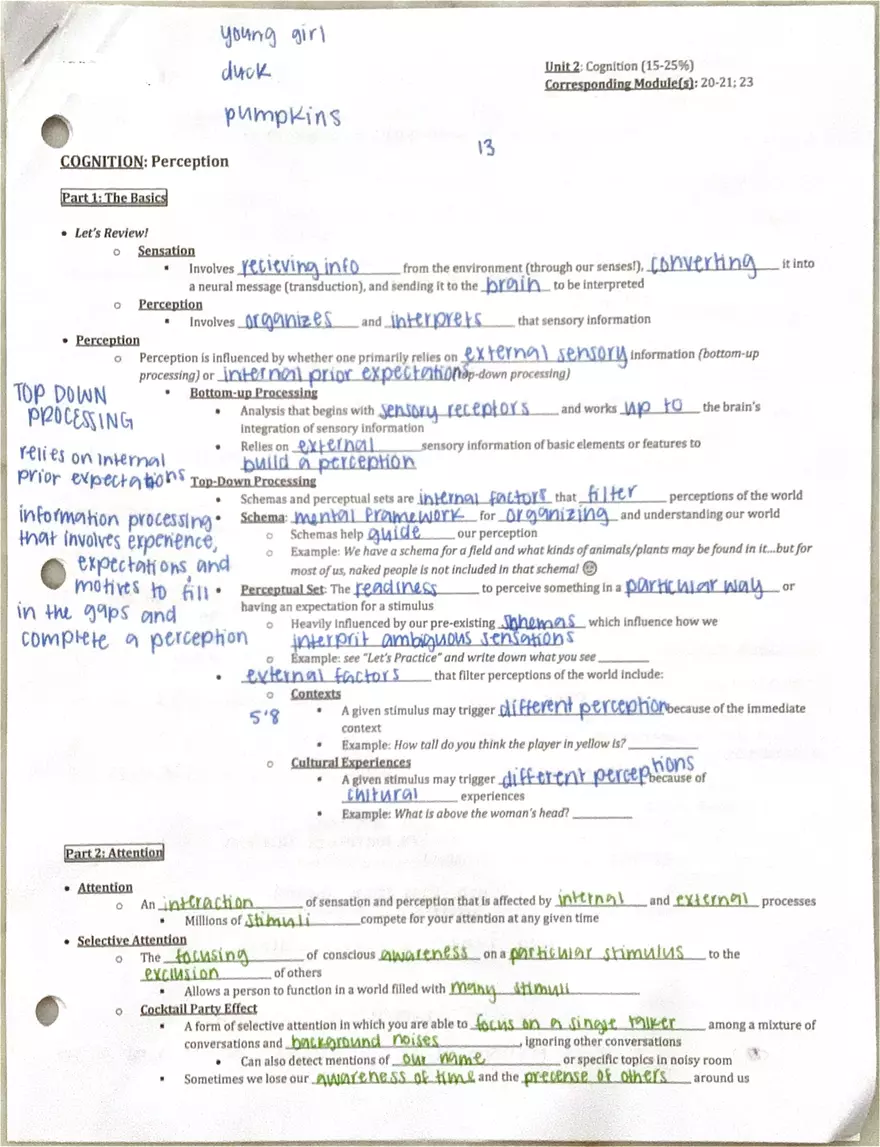 young girl
duck
pumpkins
Unit 2: Cognition (15-25%)
Corresponding Module(s): 20-21; 23
13
COGNITION: Perception
Part 1: The Basics
• Let's Review!
o Sensation
▪ Involves recieving info from the environment (through our senses!), converting it into
a neural message (transduction), and sending it to the brain to be interpreted
o Perception
▪ Involves organizes and interprets that sensory information
• Perception
o Perception is influenced by whether one primarily relies on external sensory information (bottom-up
processing) or internal prior expectations top-down processing)
TOP DOWN
PROCESSING
relies on internal
prior expectations
information processing
that involves experience,
expectations, and
motives to fill
in the gaps and
complete a perception
▪ Bottom-up Processing
• Analysis that begins with sensory receptors and works up to the brain's
integration of sensory information
• Relies on external sensory information of basic elements or features to
build a perception
Top-Down Processing
• Schemas and perceptual sets are internal factors that filter perceptions of the world
• Schema: mental framework for organizing and understanding our world
o Schemas help guide our perception
o Example: We have a schema for a field and what kinds of animals/plants may be found in it...but for
most of us, naked people is not included in that schema! ☺
• Perceptual Set: The readiness to perceive something in a particular way or
having an expectation for a stimulus
o Heavily influenced by our pre-existing schemas which influence how we
interprit ambiguous sensations
o Example: see "Let's Practice" and write down what you see ________
• external factors that filter perceptions of the world include:
o Contexts
5'8
▪ A given stimulus may trigger different perception because of the immediate
context
▪ Example: How tall do you think the player in yellow is? ________
o Cultural Experiences
▪ A given stimulus may trigger different perceptions because of
cultural experiences
▪ Example: What is above the woman's head? ________
Part 2: Attention
• Attention
o An interaction of sensation and perception that is affected by internal and external processes
▪ Millions of stimuli compete for your attention at any given time
• Selective Attention
o The focusing of conscious awareness on a particular stimulus to the
exclusion of others
▪ Allows a person to function in a world filled with many stimuli
o Cocktail Party Effect
▪ A form of selective attention in which you are able to focus on a single talker among a mixture of
conversations and background noises, ignoring other conversations
• Can also detect mentions of our name or specific topics in noisy room
▪ Sometimes we lose our awareness of time and the precense of others around us